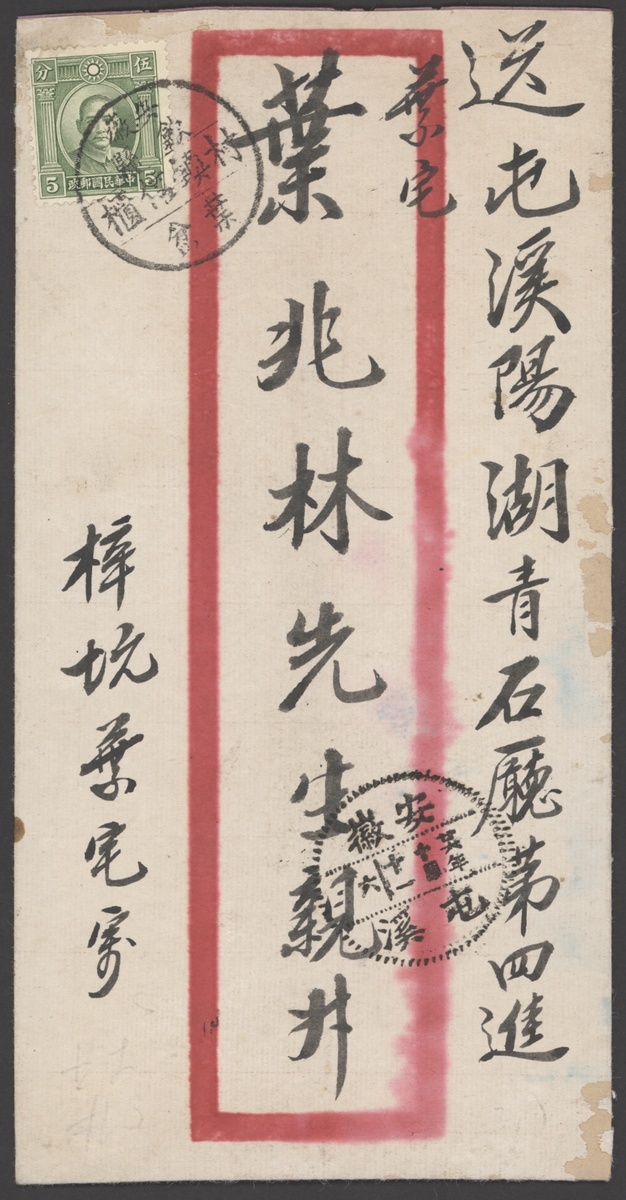 送屯溪陽湖青石廳第四進
葉宅
葉兆林先生親升
梓坑葉宅寄
伍 分
5 5
中華民國郵政
安徽
屯溪
廿六年
十一
十六
櫃
村